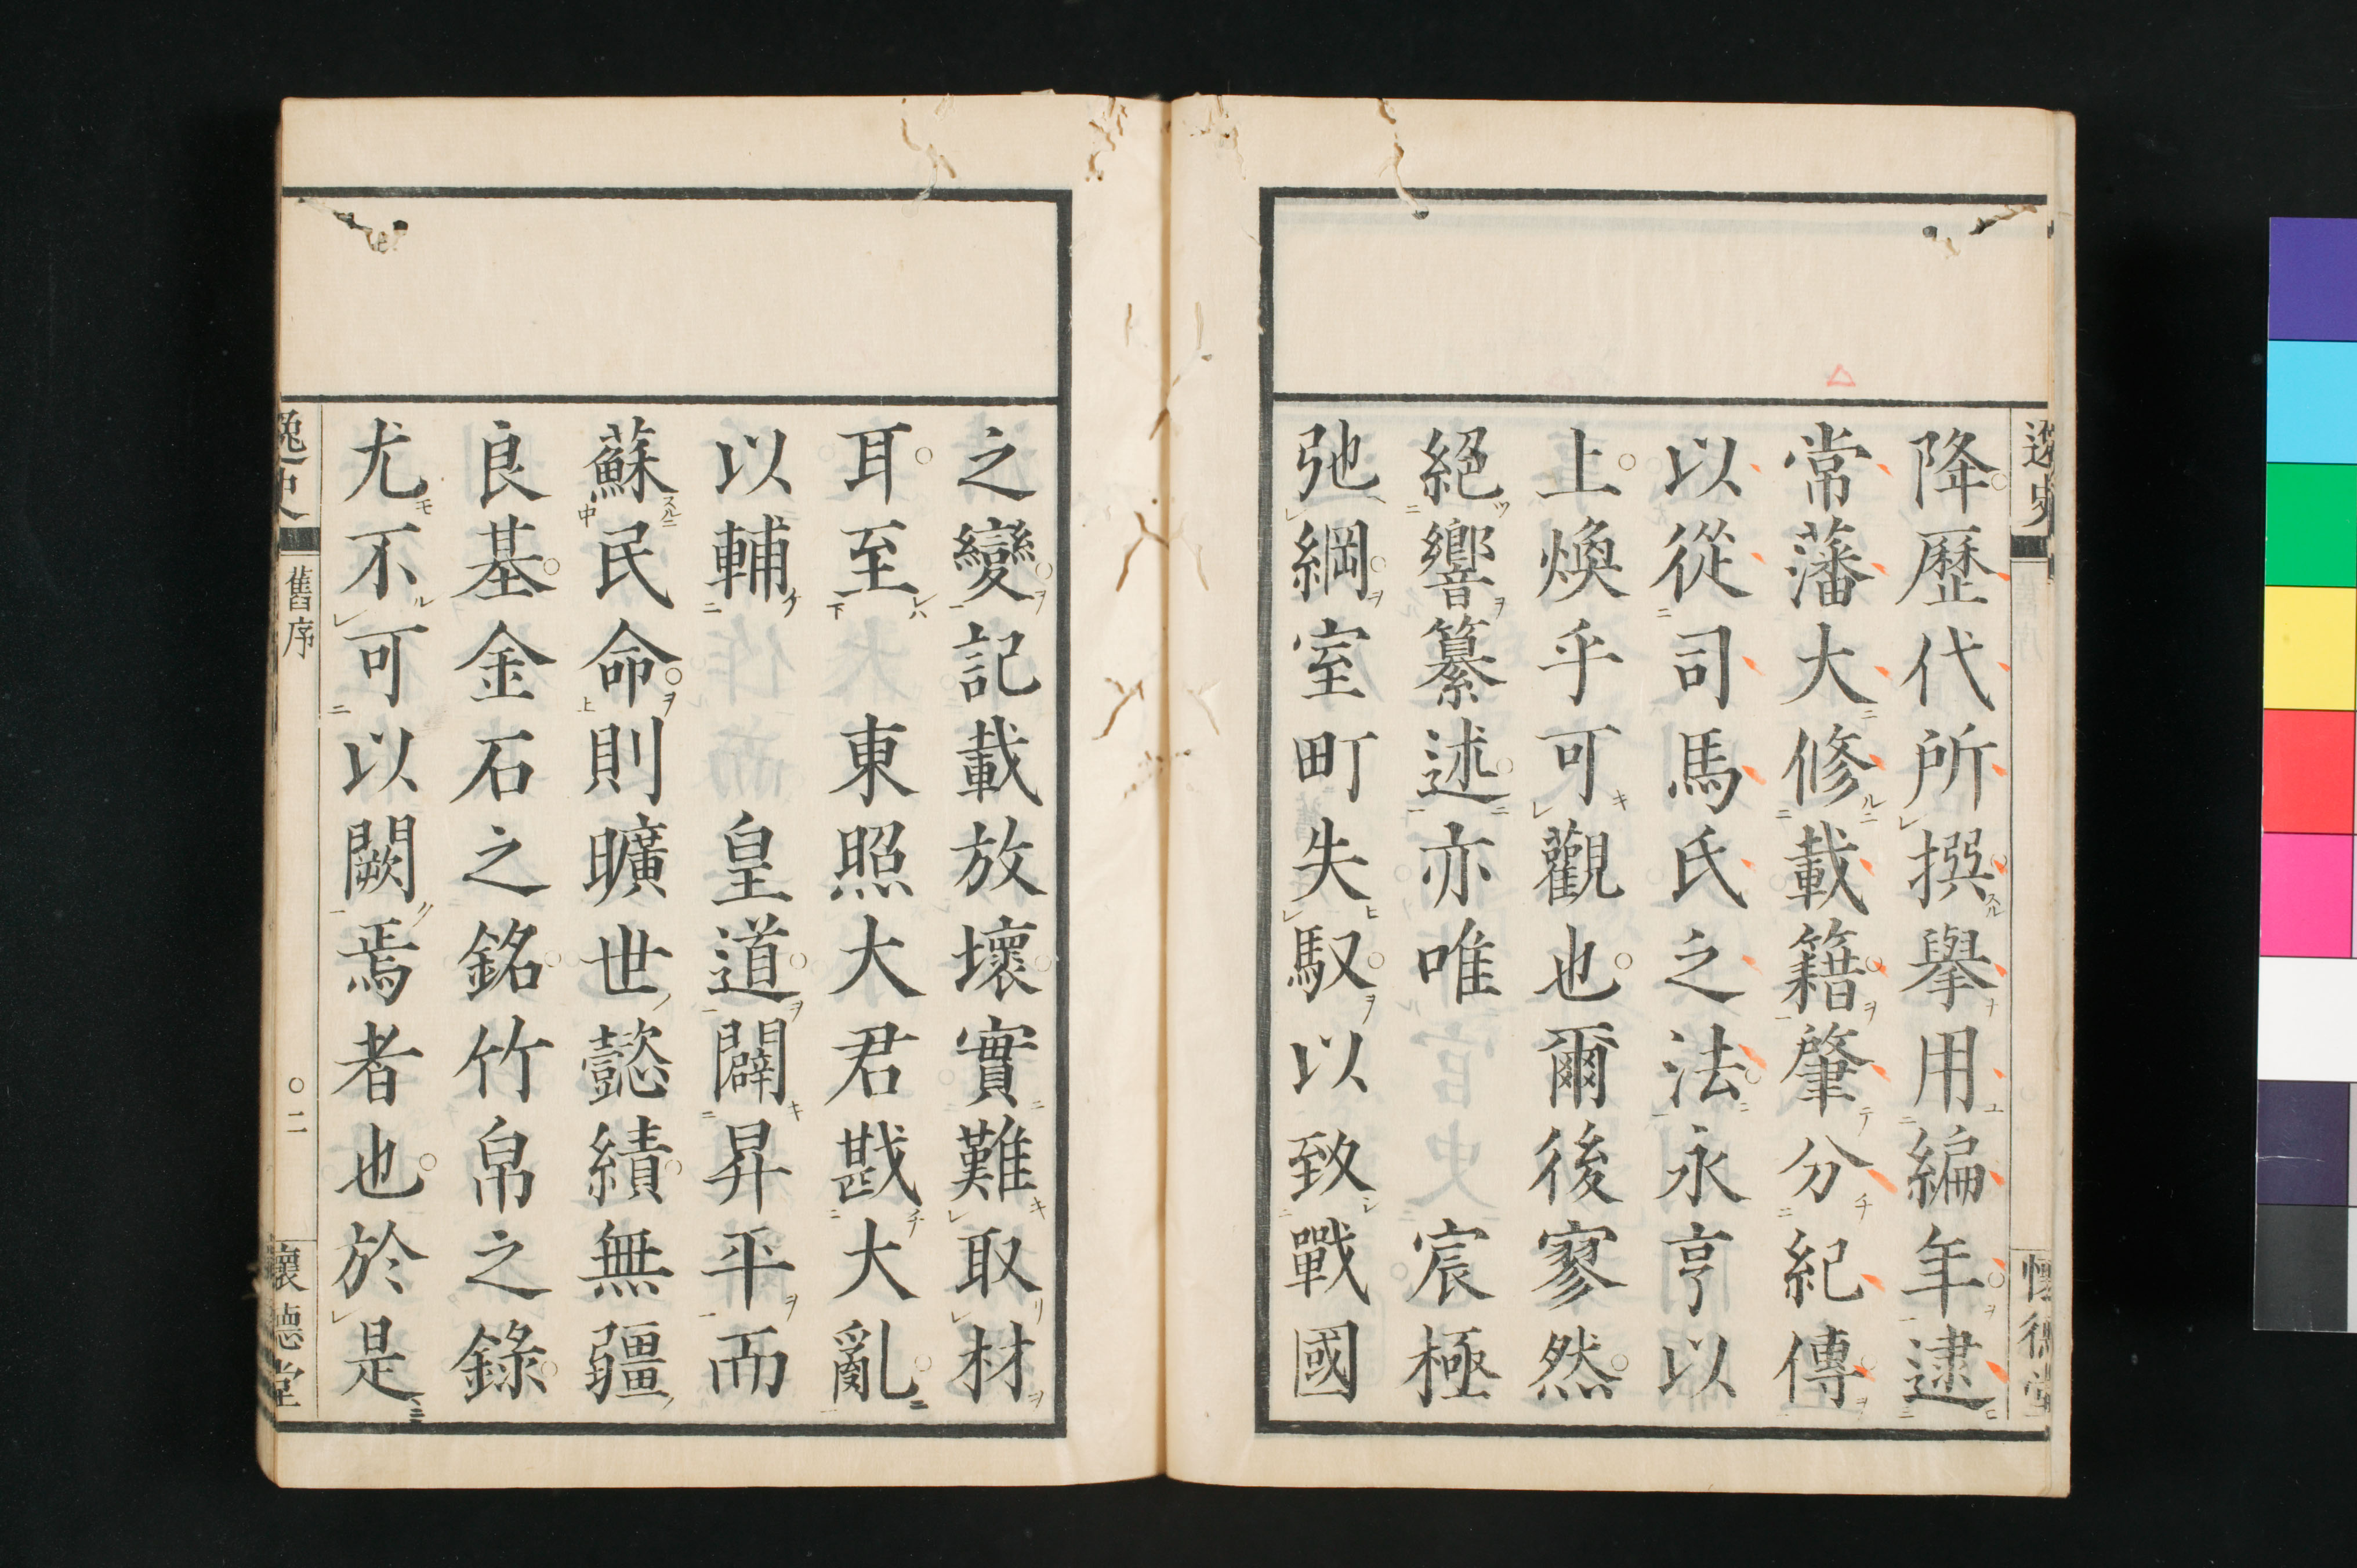 逸史
懷德堂
降歷代所撰擧用編年逮
常藩大修載籍肇分紀傳
以從司馬氏之法永亨以
上煥乎可觀也爾後寥然
絕響纂述亦唯　　宸極
弛綱室町失馭以致戰國
之變記載放壞實難取材
耳至　東照大君戡大亂
以輔　皇道闢昇平而
蘇民命則曠世懿績無疆
良基金石之銘竹帛之錄
尤不可以闕焉者也於是
逸史
舊序
〇二
懷德堂